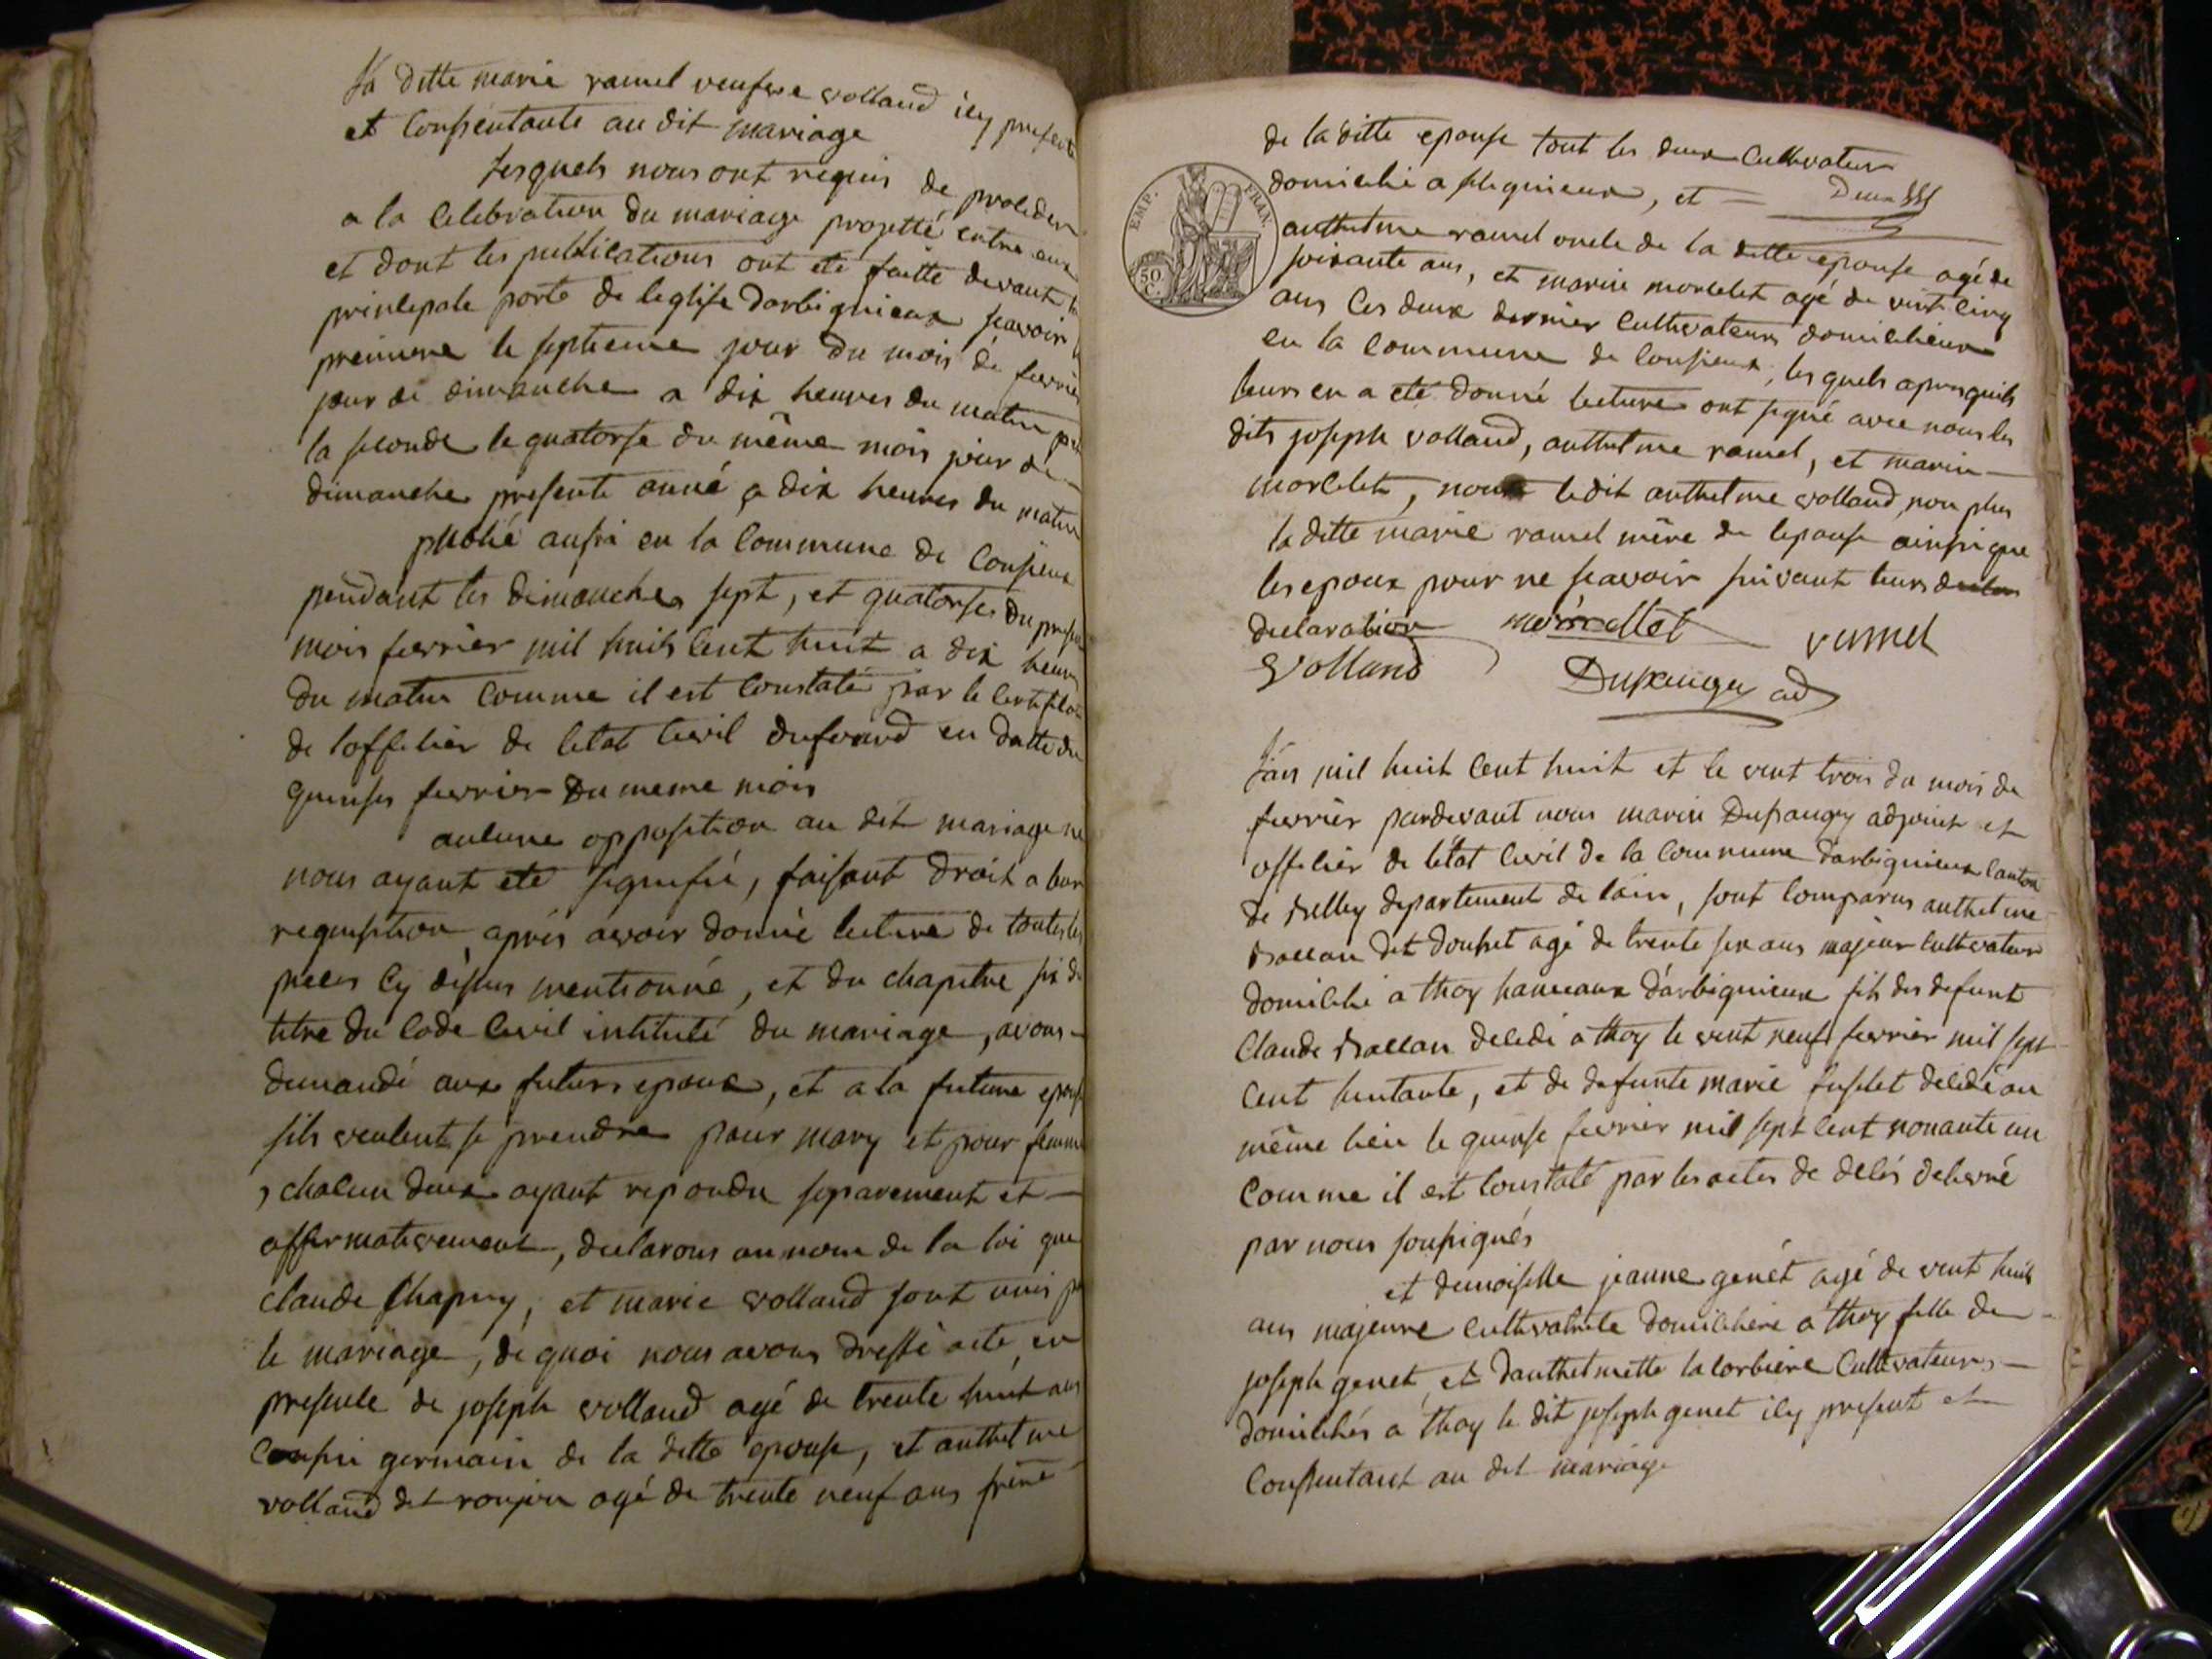 la ditte marie ramel veufve volland icy presente
et consentante au dit mariage
lesquels nous ont requis de proceder
a la celebration du mariage projetté entre eux
et dont les publications ont eté faitte devant la
principale porte de leglise darbignieux scavoir la
premiere le septieme jour du mois de fevrier
jour de dimanche a dix heures du matin
la seconde le quatorse du même mois jour de
dimanche presente anné a dix heures du matin
publié aussi en la commune de Consieux
pendant les dimanches sept, et quatorse du present
mois fevrier mil huit cent huit a dix heures
du matin comme il est constaté par le certificat
de lofficier de letat civil en datte du
quinse fevrier du meme mois
aucune opposition au dit mariage ne
nous ayant eté signifié, faisant droit a leur
requisition après avoir donné lecture de toutes les
pieces cy dessus mentionné, et du chapitre six du
titre du code civil intitulé du mariage, avons
demandé aux futurs epoux, et a la future epouse
sils veulent se prendre pour mary et pour femme
, chacun deux ayant repondu separement et
affirmativement, declarons au nom de la loi que
claude Chapuy, et marie volland sont unis par
le mariage, de quoi nous avons dressé acte en
presence de joseph volland agé de trente huit ans
cousin germain de la ditte epouse, et anthelme
volland dit agé de trente neuf ans frere
de la ditte epouse tout les deux cultivateur
domicilié a slignieux, et = Deux
EMP. FRAN.
50 C.
anthelme ramel oncle de la ditte epouse agé de
soixante ans, et marin morcelet agé de vint cinq
ans ces deux dernier cultivateurs domicilieux
en la commune de Consieux, les quels apres quils
leurs en a eté donné lecture ont signé avec nous les
dits joseph volland, anthelme ramel, et marin
morcelet, non ledit anthelme volland, non plus
la ditte marie ramel mère de lepouse ainsi que
les epoux pour ne scavoir suivant leurs
declaration morcellet ramel
Volland Dupaugey adj
Lan mil huit cent huit et le vint trois du mois de
fevrier pardevant nous marin Dupaugey adjoint et
officier de létat civil de la commune darbignieux canton
de Belley departement de lain, sont comparus anthelme
Ballan dit douhet agé de trente six ans majeur cultivateur
domicilié a thoy hameaux darbignieux fils des defunt
Claude Ballan decedé a thoy le vint neuf fevrier mil sept
cent huitante, et de defunte marie decedé au
même lieu le quinse fevrier mil sept cent nonante un
comme il est constaté par les actes de décés delivré
par nous sousignés
et demoiselle jeanne genet agé de vint huit
ans majeure cultivatrice domiciliere a thoy fille de
joseph genet et danthelmette lacorbiere Cultivateurs
domiciliés a thoy le dit joseph genet icy present et
consentant au dit mariage